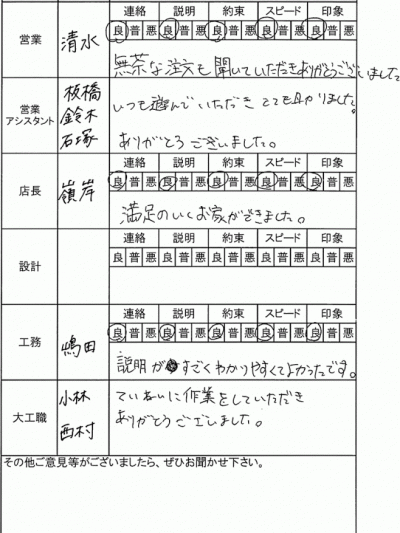 連絡 説明 約束 スピード 印象
営業 清水 良 普 悪 良 普 悪 良 普 悪 良 普 悪 良 普 悪
無茶な注文も聞いていただきありがとうございました
営業アシスタント
板橋
鈴木
石塚
いつも遊んでいただき とても助かりました。
ありがとうございました。
連絡 説明 約束 スピード 印象
店長 嶺岸 良 普 悪 良 普 悪 良 普 悪 良 普 悪 良 普 悪
満足のいくお家ができました。
連絡 説明 約束 スピード 印象
設計 良 普 悪 良 普 悪 良 普 悪 良 普 悪 良 普 悪
連絡 説明 約束 スピード 印象
工務 嶋田 良 普 悪 良 普 悪 良 普 悪 良 普 悪 良 普 悪
説明がすごくわかりやすくてよかったです。
大工職
小林
西村
ていねいに作業をしていただき
ありがとうございました。
その他ご意見等がございましたら、ぜひお聞かせ下さい。